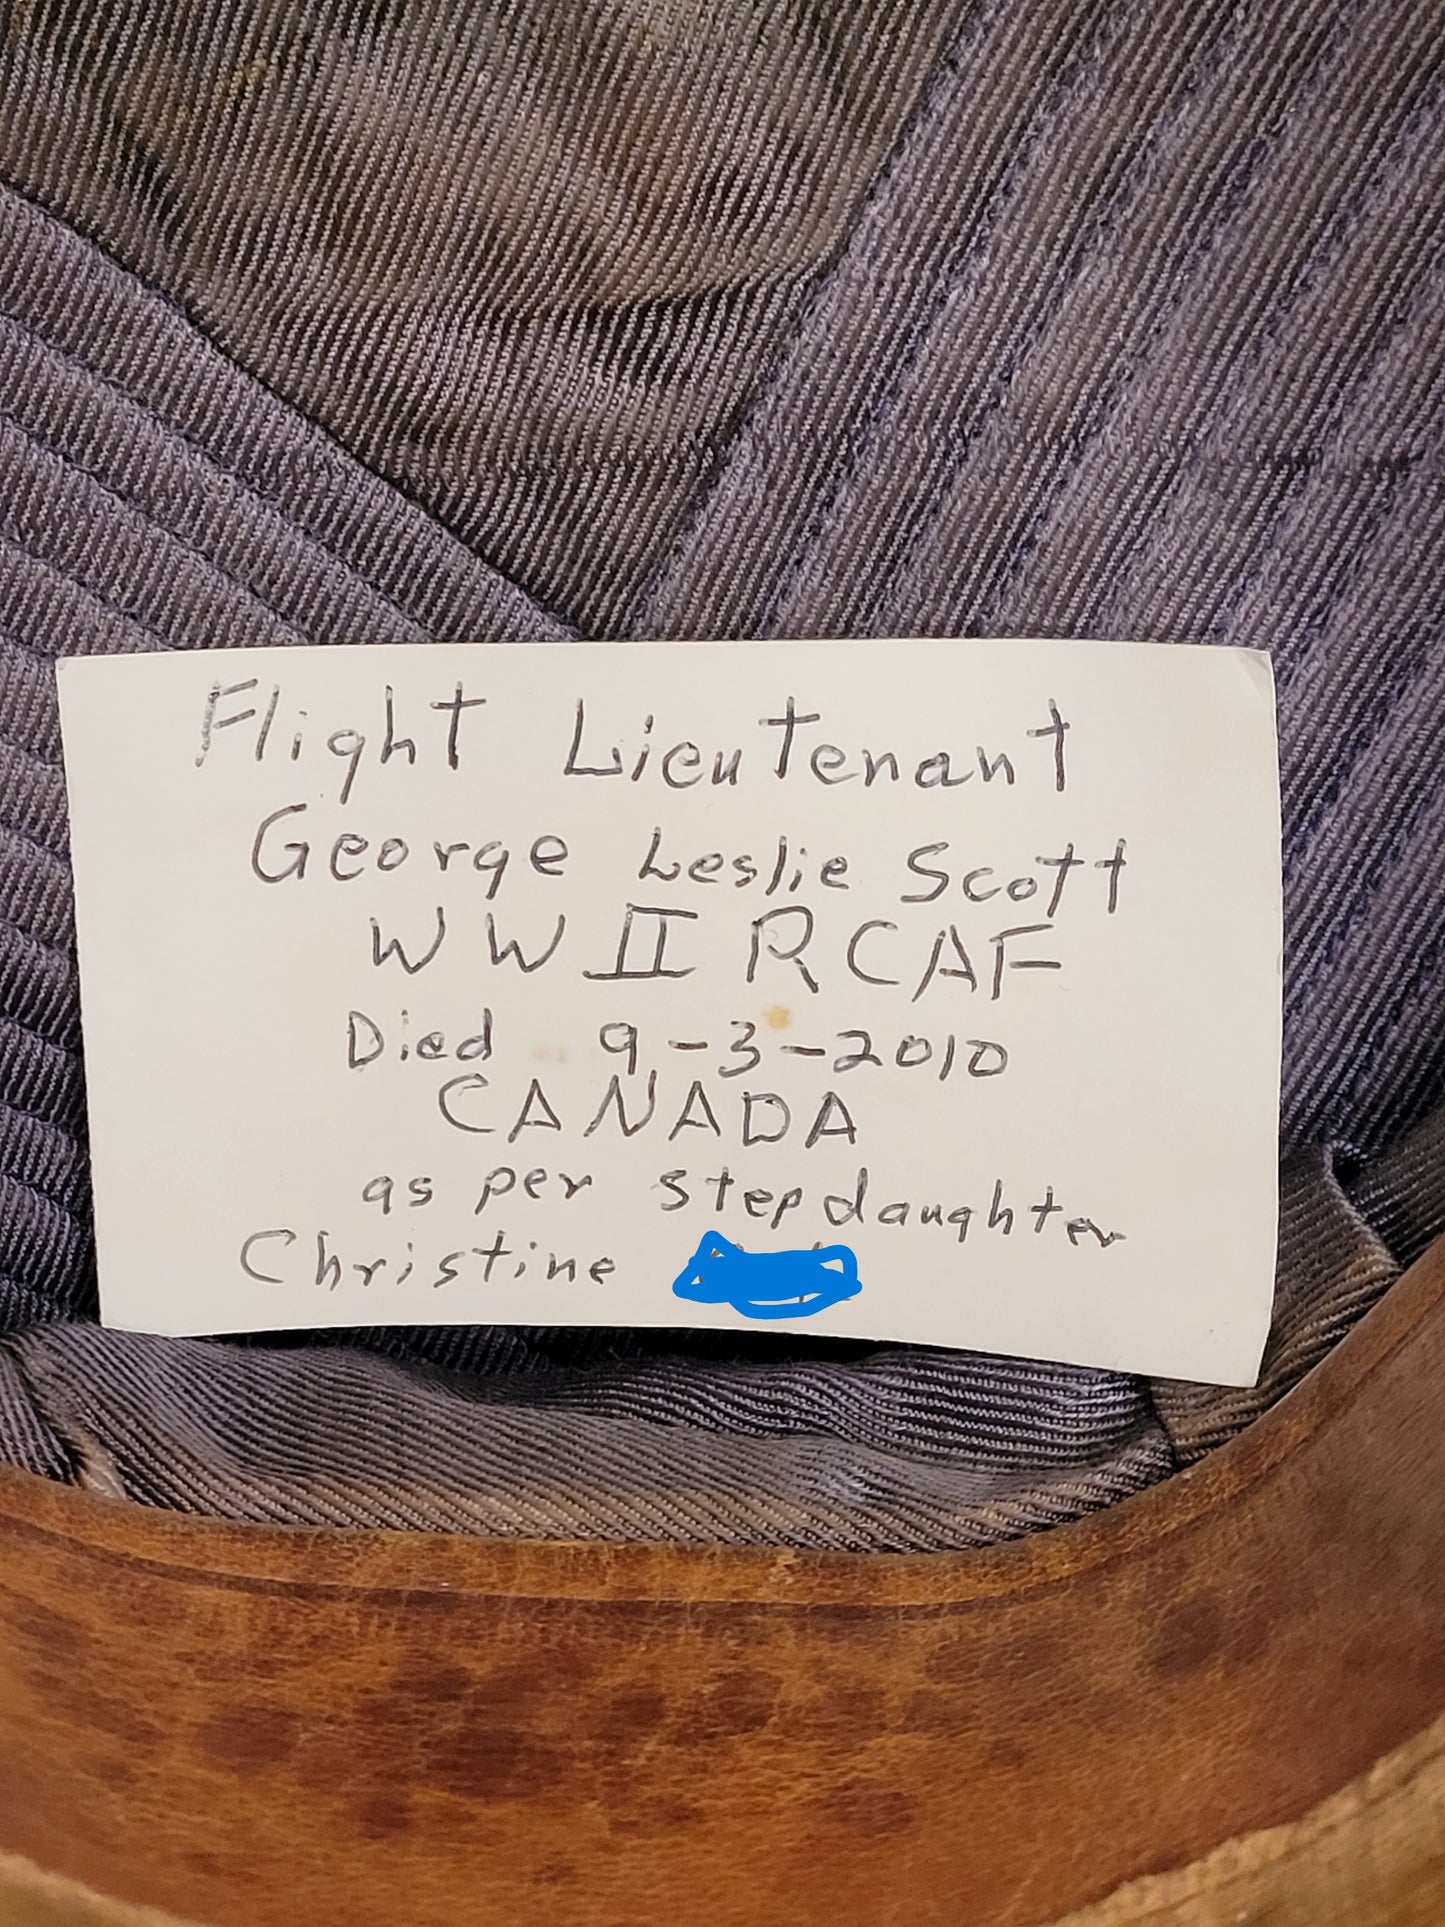 Flight Lieutenant
George Leslie Scott
WW II RCAF
Died 9-3-2010
CANADA
as per stepdaughter
Christine